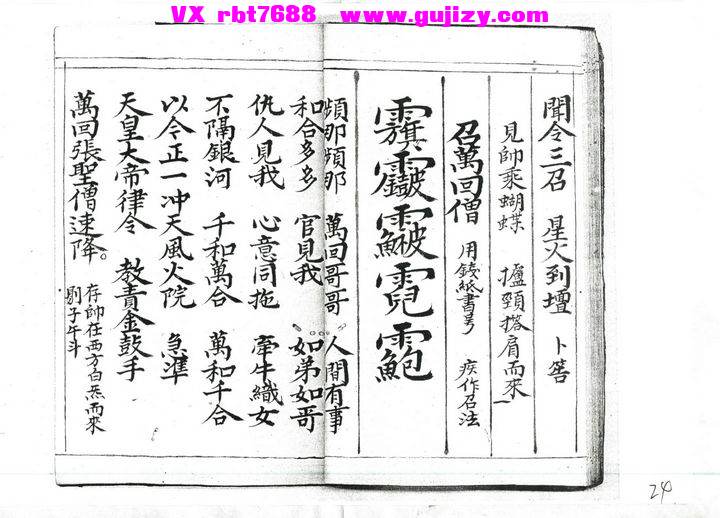 VX rbt7688 www.gujizy.com
聞令三召 星火到壇 卜筶
見帥乘蝴蝶 攎頸搭肩而來
召萬回僧 用錢紙書号 疾作召法
頻那頻那 萬回哥哥 人間有事
和合多多 官見我 如弟如哥
仇人見我 心意同拖 牽牛織女
不隔銀河 千和萬合 萬和千合
以令正一冲天風火院 急準
天皇大帝律令 教責金鼓手
萬回張聖僧速降。 存帥在西方白炁而來
剔子午斗
24